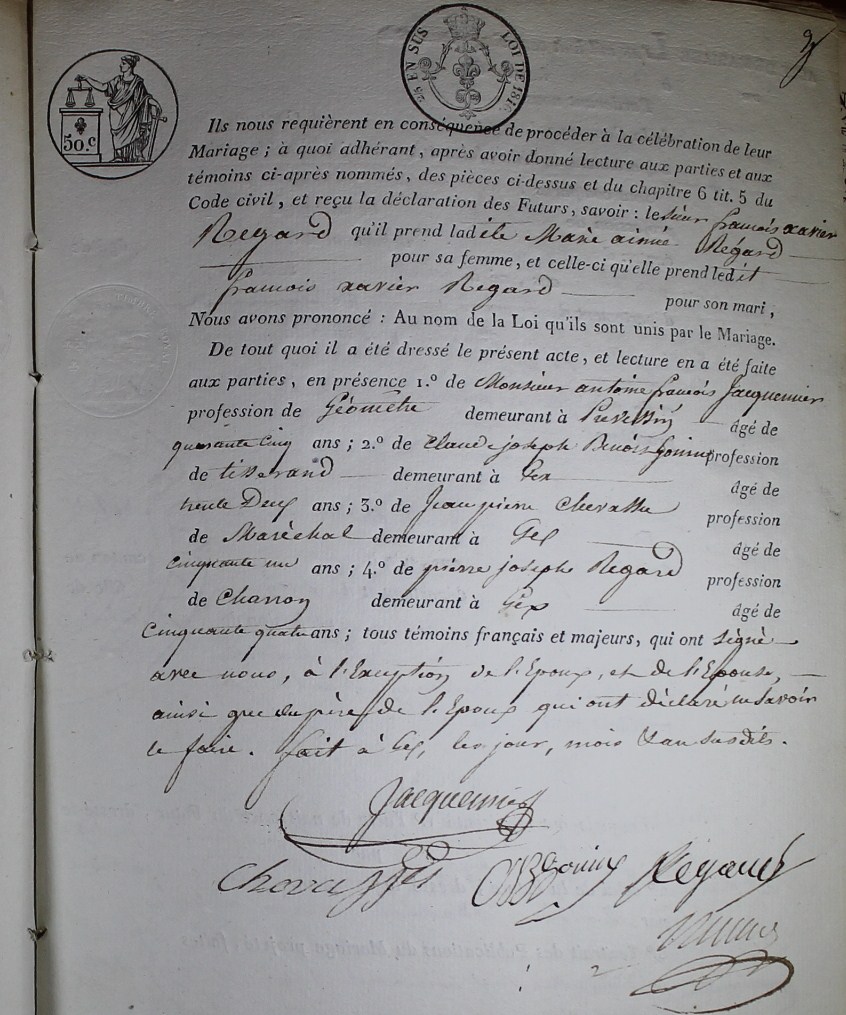 25 EN SUS LOI DE 1816
50.c
Ils nous requièrent en conséquence de procéder à la célébration de leur
Mariage ; à quoi adhérant, après avoir donné lecture aux parties et aux
témoins ci-après nommés, des pièces ci-dessus et du chapitre 6 tit. 5 du
Code civil, et reçu la déclaration des Futurs, savoir : le sieur francois xavier
Regard qu'il prend ladite Marie aimée Regard
pour sa femme, et celle-ci qu'elle prend ledit
francois xavier Regard pour son mari,
Nous avons prononcé : Au nom de la Loi qu'ils sont unis par le Mariage.
De tout quoi il a été dressé le présent acte, et lecture en a été faite
aux parties, en présence 1.º de Monsieur antoine francois Jacquemier
profession de Géomètre demeurant à Prevessin âgé de
quarante cinq ans ; 2.º de Claude joseph Benoit Gonin profession
de tisserand demeurant à Gex âgé de
trente Deux ans ; 3.º de Jean pierre Chevassu profession
de Maréchal demeurant à Gex âgé de
cinquante un ans ; 4.º de pierre joseph Regard profession
de Charron demeurant à Gex âgé de
Cinquante quatre ans ; tous témoins français et majeurs, qui ont Signé
avec nous, à l'Exception de l'Epoux, et de l'Epouse,
ainsi que du père de l'Epoux qui ont déclaré ne Savoir
le faire. fait à Gex, les jour, mois & an susdits.
Jacquemier
Chevassus CJBGonin Regard